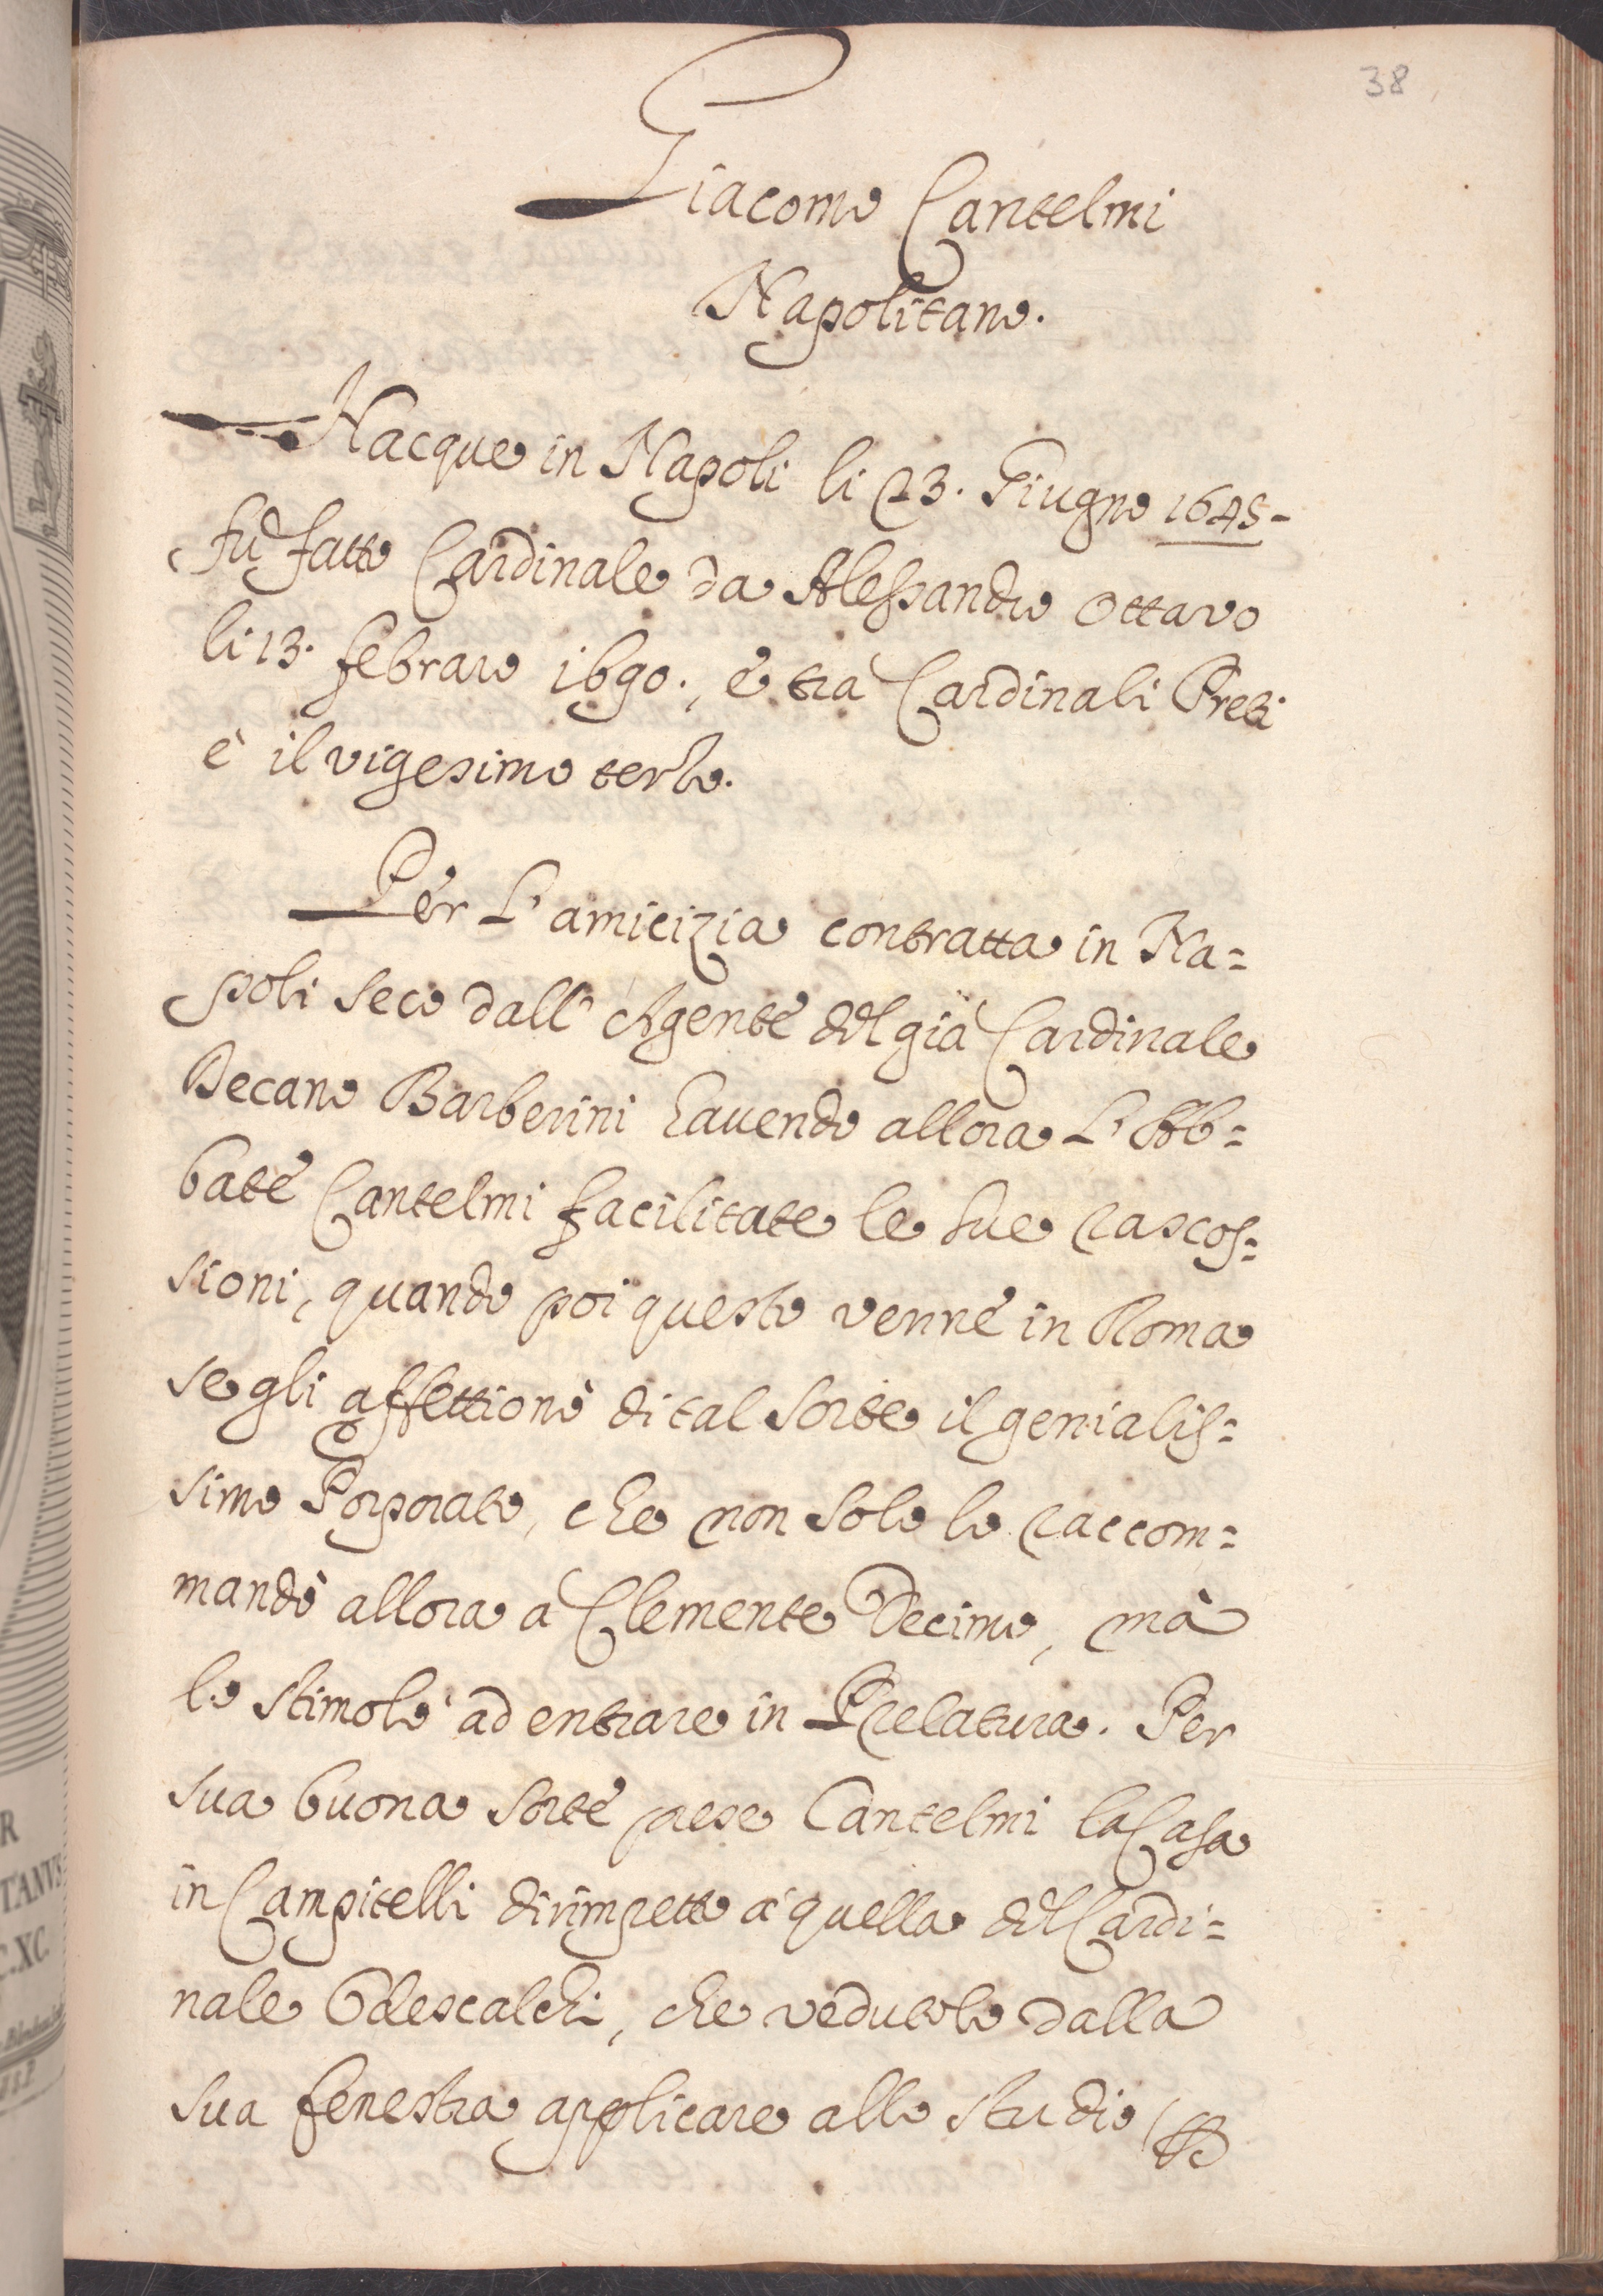 38
Giacomo Cantelmi
Napolitano.
Nacque in Napoli li 23. Giugno 1645-
fu fatto Cardinale da Alessandro Ottavo
li 13. febraro 1690., e tra Cardinali Preti
è il vigesimo terzo.
Per L'amicizia contratta in Na=
poli seco dall' Agente del già Cardinale
Decano Barberini havendo allora L'Ab=
bate Cantelmi facilitate le sue rascos=
sioni, quando poi questo venne in Roma
se gli affettionò di tal sorte il genialis=
simo Porporato, che non solo lo raccom=
mandò allora a Clemente Decimo, mà
lo stimolò ad entrare in Prelatura. Per
sua buona sorte prese Cantelmi la Casa
in Campitelli dirimpetto à quella del Cardi=
nale Odescalchi, che vedutolo dalla
sua fenestra applicare allo studio
R
TANVS
C.XC.